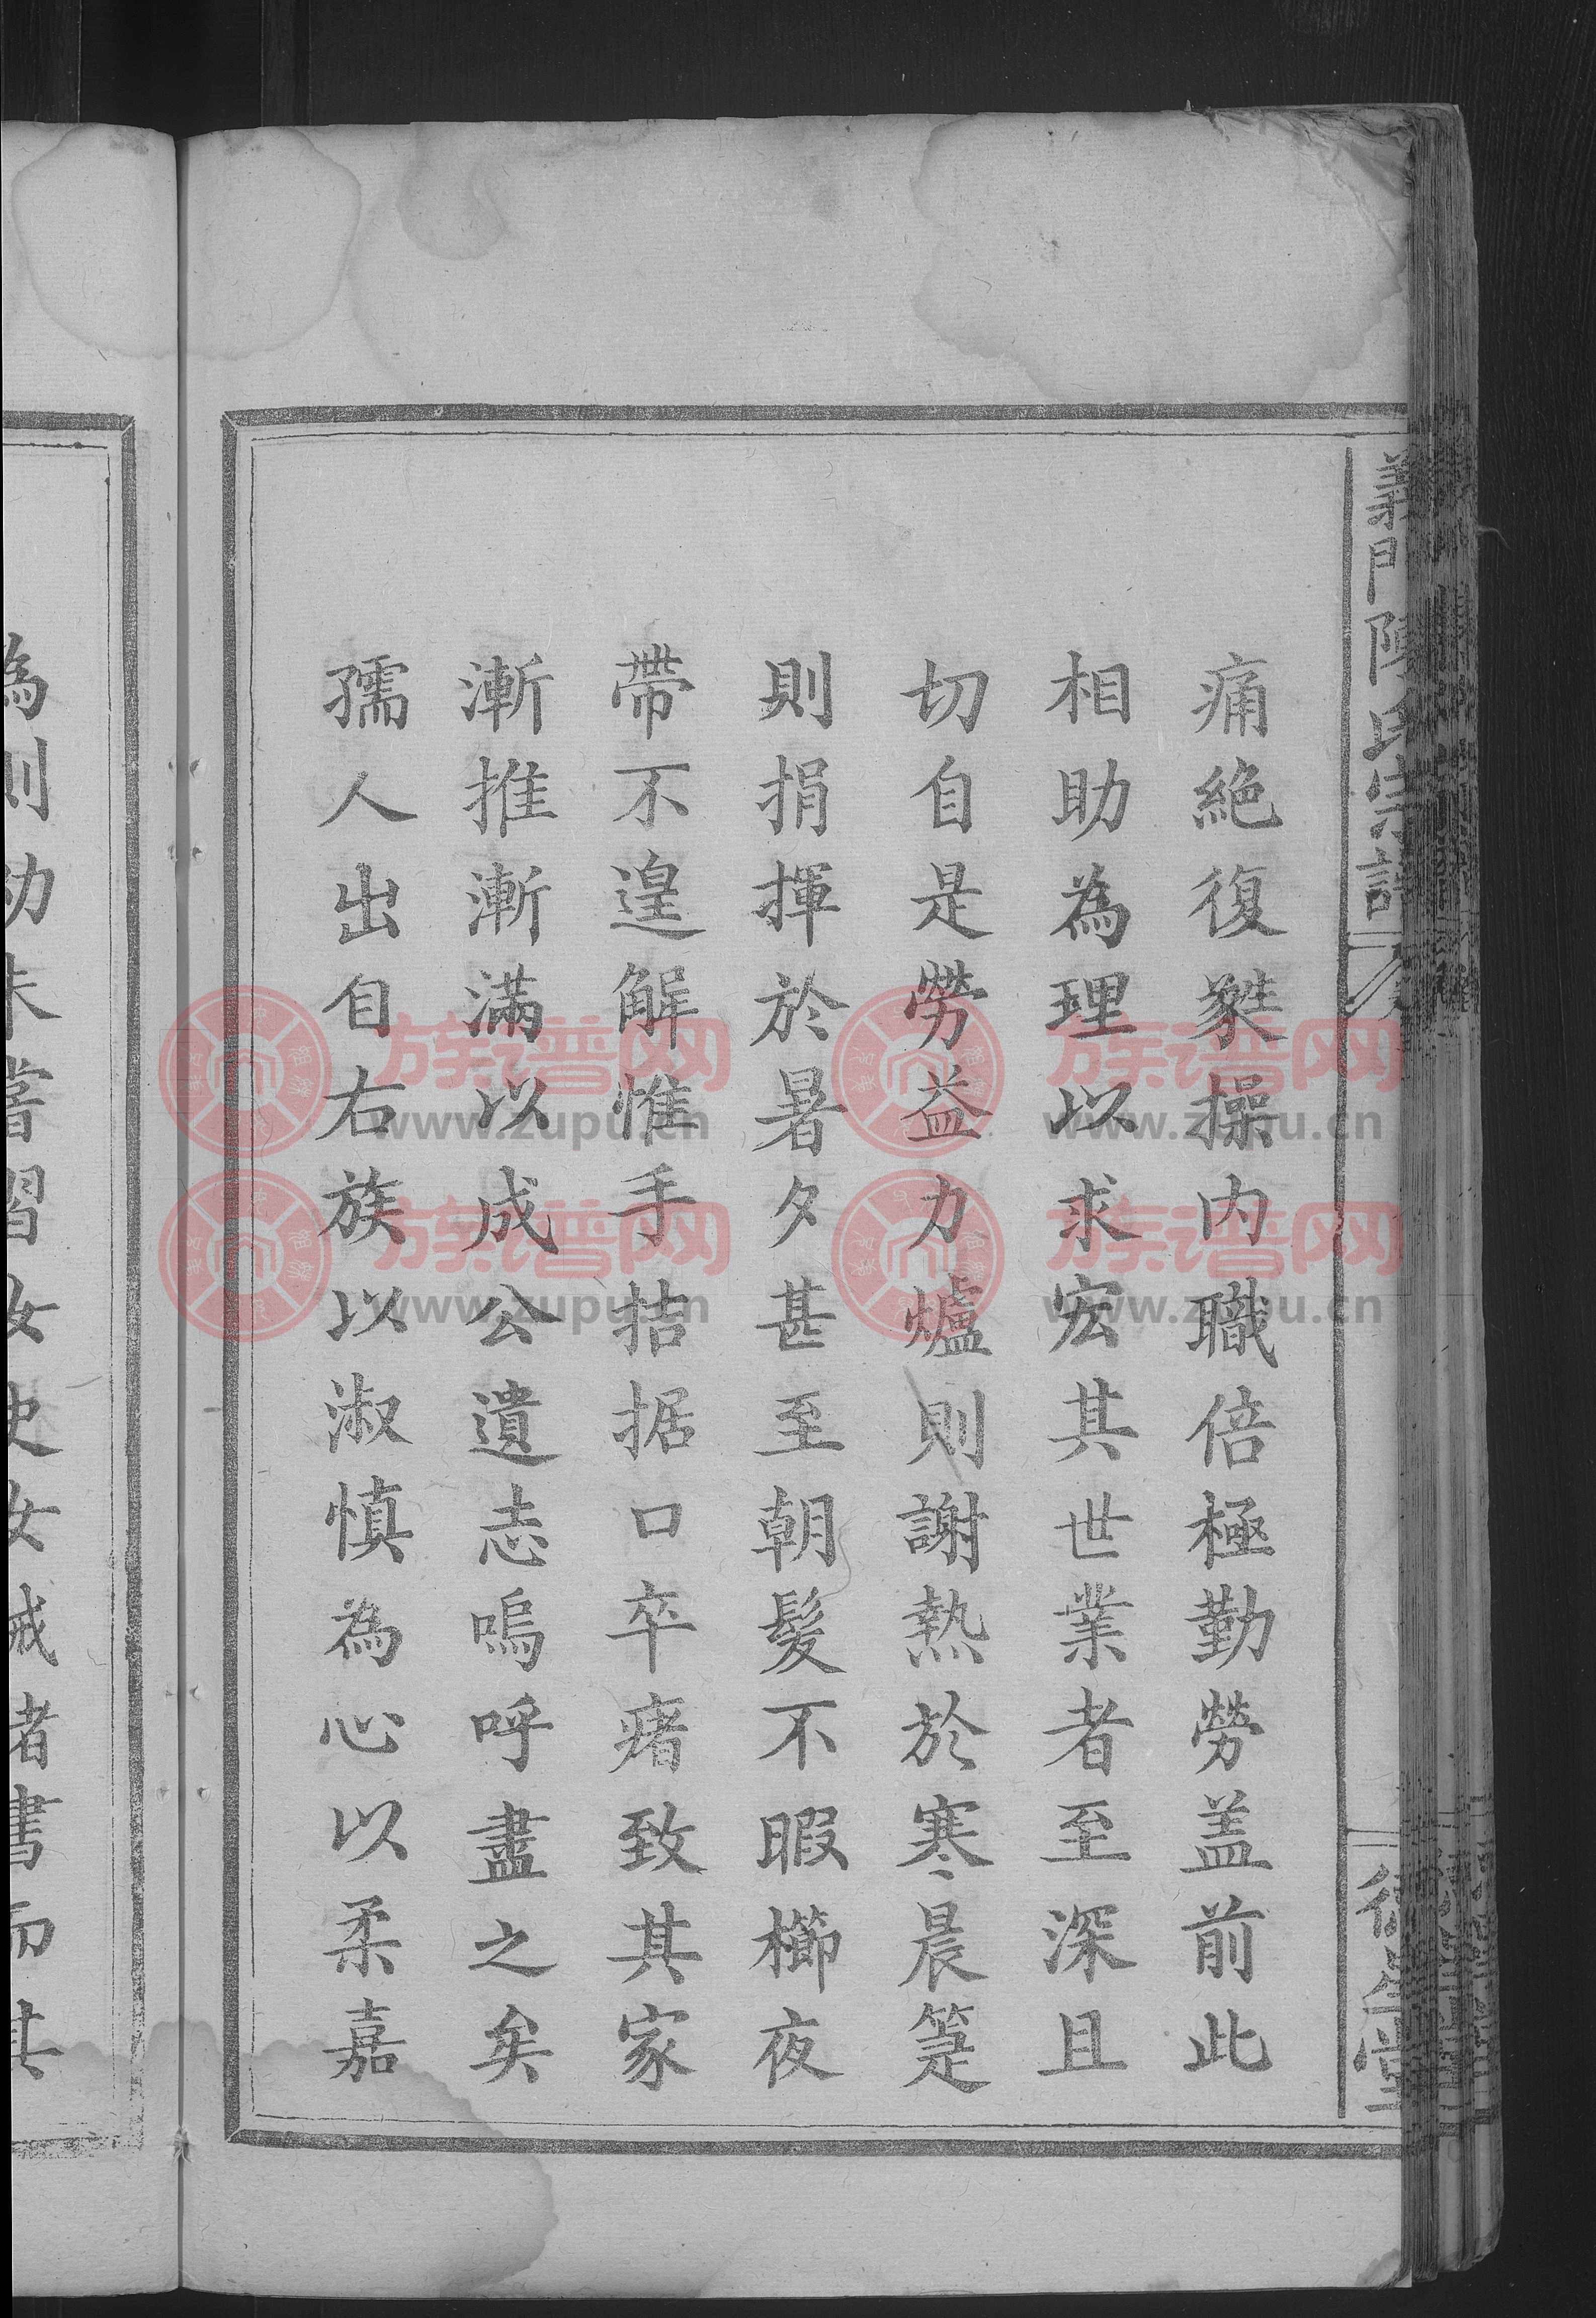 義門陳氏宗譜
痛絕復甦操內職倍極勤勞盖前此
相助為理以求宏其世業者至深且
切自是勞益力爐則謝熱於寒晨箑
則捐揮於暑夕甚至朝髮不暇櫛夜
帶不遑解惟手拮据口卒瘏致其家
漸推漸滿以成公遺志嗚呼盡之矣
孺人出自右族以淑慎為心以柔嘉
為則幼未嘗習女史女誡者書而其
族谱网
www.zupu.cn
族谱网
www.zupu.cn
族谱网
www.zupu.cn
族谱网
www.zupu.cn